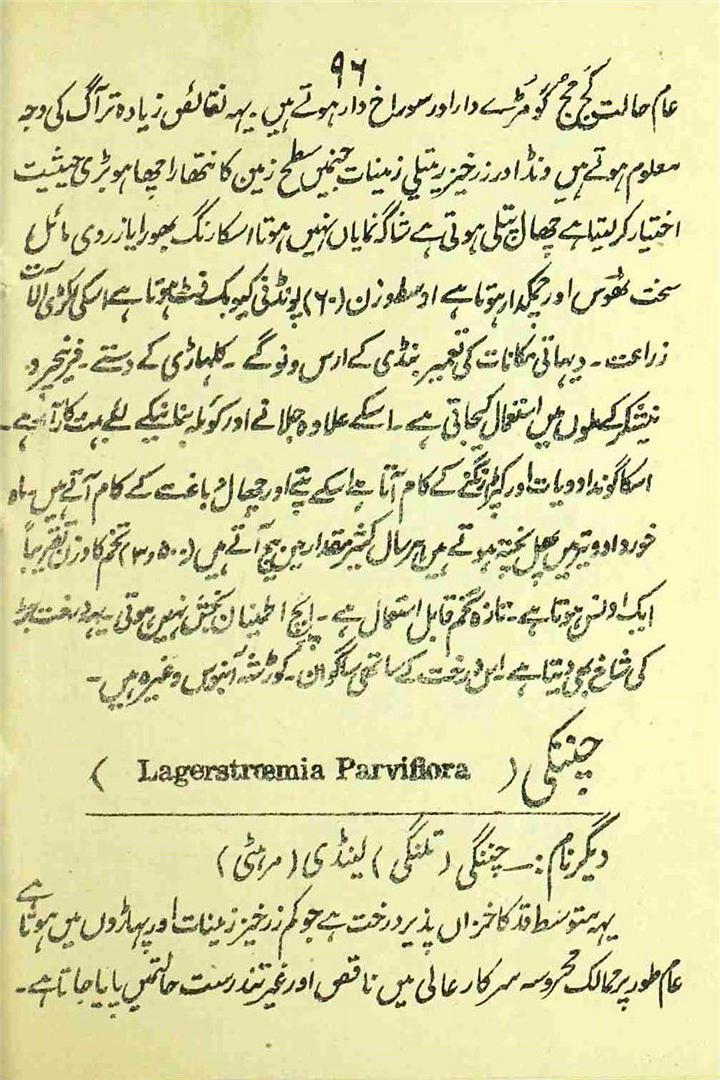 ۹۶
عام حالت کج مج گومڑے دار اور سوراخ دار ہوتے ہیں۔ یہہ نقائص زیادہ تر آگ کی وجہ
معلوم ہوتے ہیں ونڈ اور زرخیز ریتلی زمینات جنمیں سطح زمین کا نتھارا چھا ہو بڑی حیثیت
اختیار کر لیتا ہے چھال پتلی ہوتی ہے شاگہ نمایاں نہیں ہوتا اسکا رنگ بھورا یا زردی مائل
سخت ٹھوس اور چمکدار ہوتا ہے اوسط وزن (۶۰) پونڈ فی کیوبک فٹ ہوتا ہے اسکی لکڑی آلات
زراعت۔ دیہاتی مکانات کی تعمیر بنڈی کے ارس و نوگے۔ کلہاڑی کے دستے۔ فرنیچر و
نیشکر کے ملوں میں استعمال کیجاتی ہے۔ اسکے علاوہ جلانے اور کوئلہ بنانیکے لئے بہت کارآمد ہے۔
اسکا گوند ادویات اور کپڑا رنگنے کے کام آتا ہے اسکے پتے اور چھال دباغت کے کام آتے ہیں۔ ماہ
خورداد و تیر میں پھل پختہ ہوتے ہیں ہر سال کثیر مقدار میں بیج آتے ہیں (۳٫۵۰۰) تخم کا وزن تقریباً
ایک اونس ہوتا ہے۔ تازہ تخم قابل استعمال ہے۔ اپج اطمینان بخش نہیں ہوتی۔ یہہ درخت جڑ
کی شاخ بھی دیتا ہے۔ اس درخت کے ساتھی ساگوان۔ کوڑشہ آبنوس وغیرہ ہیں۔
چننگی ( Lagerstrœmia Parviflora )
دیگر نام :۔ چننگی (تلنگی) لینڈی (مرہٹی)
یہہ متوسط قد کا خزاں پذیر درخت ہے جو کم زرخیز زمینات اور پہاڑوں میں ہوتا ہے
عام طور پر ممالک محروسہ سرکار عالی میں ناقص اور غیر تندرست حالتمیں پایا جاتا ہے۔